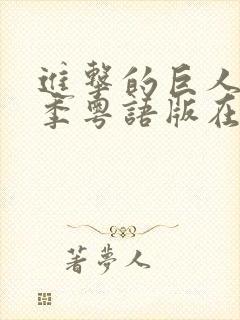 進擊的巨人
季粵語版在
著夢人